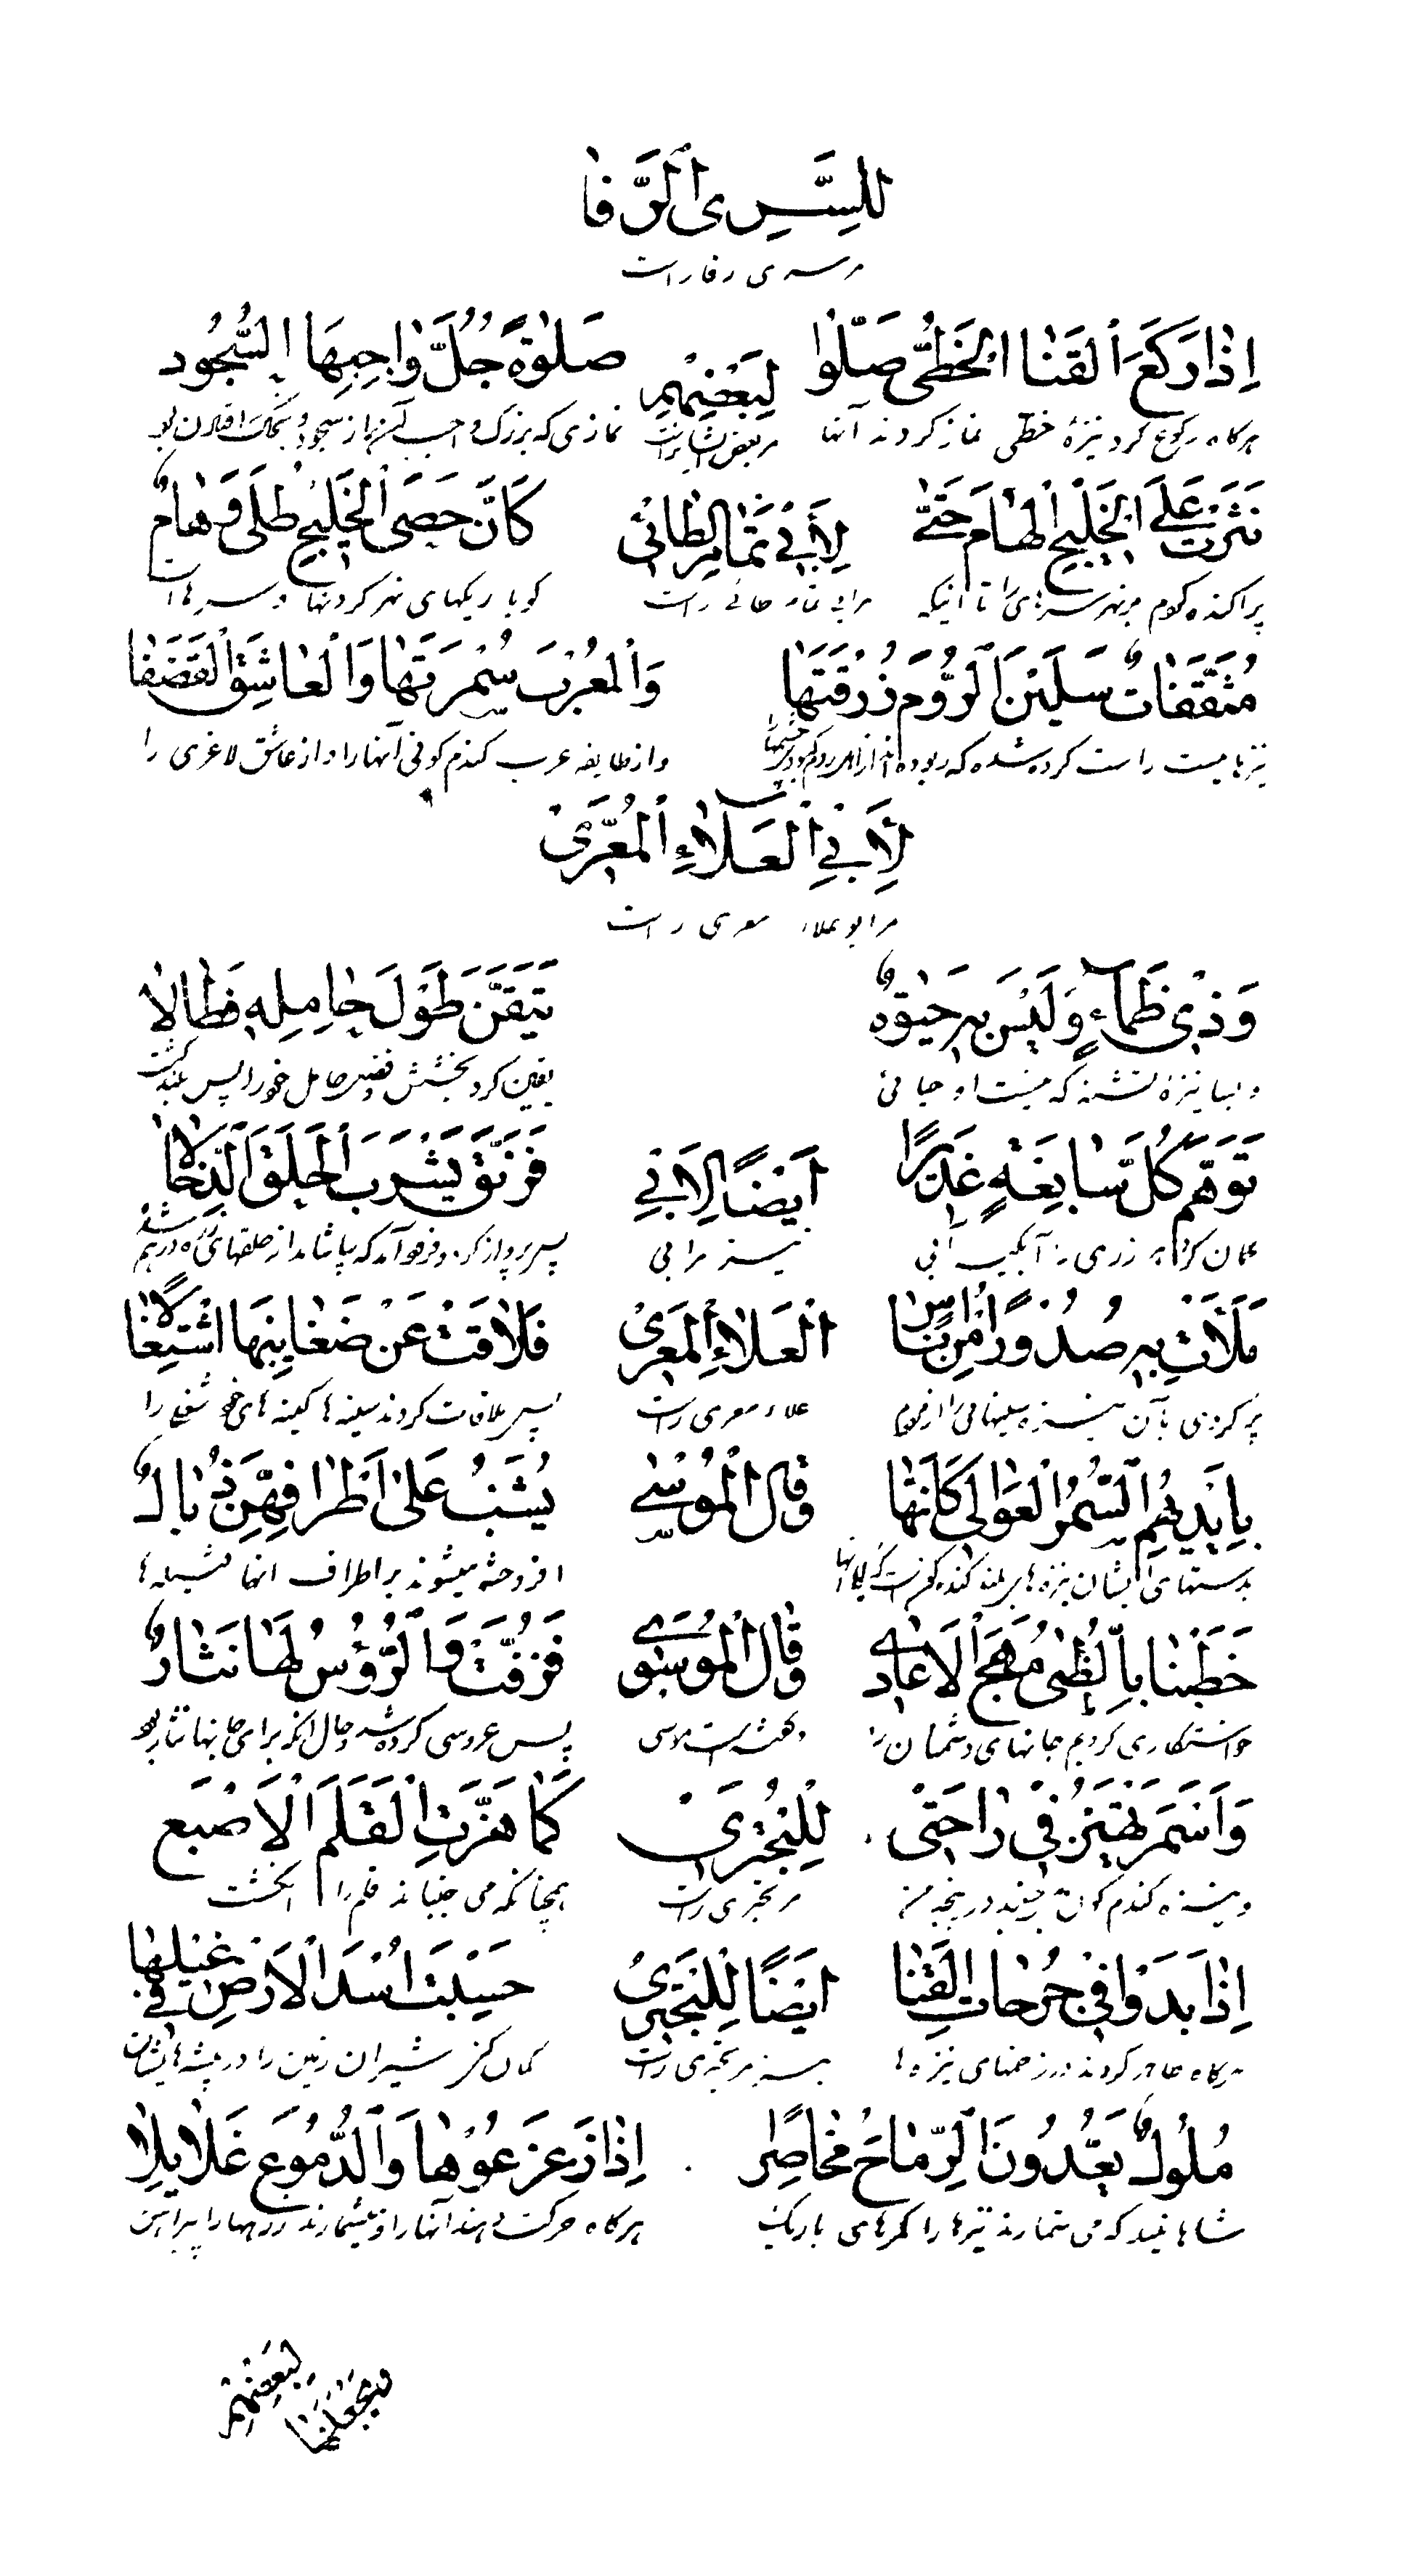 لِلسَّرِىِ ٱلرَّفَا
مر سری رفا راست
اِذَا رَكَعَ ٱلْقَنَا الْخَطِّىُّ صَلَّوْا لِبَعْضِهِمْ صَلٰوةً جُلُّ وَاجِبِهَا السُّجُود
هرگاه رکوع کرد نیزهٔ خطّی نماز کردند آنها مر بعض ایشانراست نمازی که بزرگ واجب آن نماز سجود
نَثَرْتَ عَلَى الْخَلِيجِ الْهَامَ حَتّٰى لِأَبِي تَمَّامِ الطَّائِيِّ كَاَنَّ حَصَى الْخَلِيجِ طُلًى وَهَامٌ
پراکنده کردم بر نهر سرهای را تا آنیکه مر ابی تمام طائی راست گویا ریگهای نهر گردنها و سرهاست
مُثَقَّفَاتٌ سَلَبْنَ الرُّومَ زُرْقَتَهَا وَالْعُرْبَ سُمْرَتَهَا وَالْعَاشِقَ الْقَضَفَا
نیزهائیست راست کرده شده که ربوده اند از اهل روم کبودی و از طایفه عرب گندم گونی آنها را و از عاشق لاغری را
لِأَبِي الْعَلَاءِ الْمَعَرِّىِّ
مر ابو علاء معری راست
وَذِي ظَمَاءٍ وَلَيْسَ بِهِ حَيٰوةٌ تَيَقَّنَ طَوْلَ حَامِلِهِ فَطَالَا
و بسا نیزهٔ تشنه که نیست او حیاتی یقین کرد بخشش و فضل حامل خود را پس بلند گشت
تَوَهَّمَ كُلَّ سَابِغَةٍ غَدِيرًا اَيْضًا لِاَبِي فَرَنَّقَ يَشْرَبُ الْحَلَقَ الدِّخَالَا
گمان کرد هر زرهی را آبگیر آبی نیز مر ابی پس پرواز کرد و فرود آمد که بیاشامد از حلقهای زره درهم شده
مَلَأْتَ بِهِ صُدُورًا مِنْ اُنَاسٍ الْعَلَاءِ الْمَعَرِّىِّ فَلَاقَتْ عَنْ ضَغَايِنِهَا اشْتِغَالًا
پر کردی بآن نیزه سینهائی را از مردم علاء معری راست پس ملاقات کردند سینه ها کینه های خود شغلی را
بِاَيْدِيهِمِ السُّمْرُ الْعَوَالِي كَاَنَّهَا وَقَالَ الْمُوسَى يُشَبُّ عَلٰى اَطْرَافِهِنَّ ذُبَالٌ
بدستهای ایشان نیزه های بلند گندم گونست که گویا آنها افروخته میشوند بر اطراف آنها فتیله ها
خَطَبْنَا بِالظُّبٰى مُهَجَ الْاَعَادِي وَقَالَ الْمُوسَوِى فَزُفَّتْ وَالرُّؤُسُ لَهَا نَثَارٌ
خواستگاری کردیم جانهای دشمنان را و گفته است موسی پس عروسی کرده شد و حال آنکه برای جانها نثار بود
وَاَسْمَرَ يَهْتَزُّ فِي رَاحَتِى لِلْبُحْتُرِى كَمَا هَزَّتِ الْقَلَمَ الْاَصْبَع
و نیزه گندم گون می جنبد در پنجه من مر بحتری راست همچنانکه می جنباند قلم را انگشت
اِذَا بَدَوْا فِي حُرَجَاتِ الْقَنَا اَيْضًا لِلْبُحْتُرِىِّ حَسِبْتَ اُسْدَ الْاَرْضِ فِي غِيلِهَا
هرگاه ظاهر گردند در زخمهای نیزه ها نیز مر بحتری راست گمان کنی شیران زمین را در بیشه هایشان
مُلُوكٌ يَعُدُّونَ الرِّمَاحَ مَخَاصِرَ اِذَا زَعْزَعُوهَا وَالدُّرُوعَ غَلَايِلَا
شاهانیند که می شمارند نیزها را کمرهای باریک هرگاه حرکت دهند آنها را و میشمارند زرهها را پیراهن
لِبَعْضِهِمْ
فَيَجْعَلُنَا